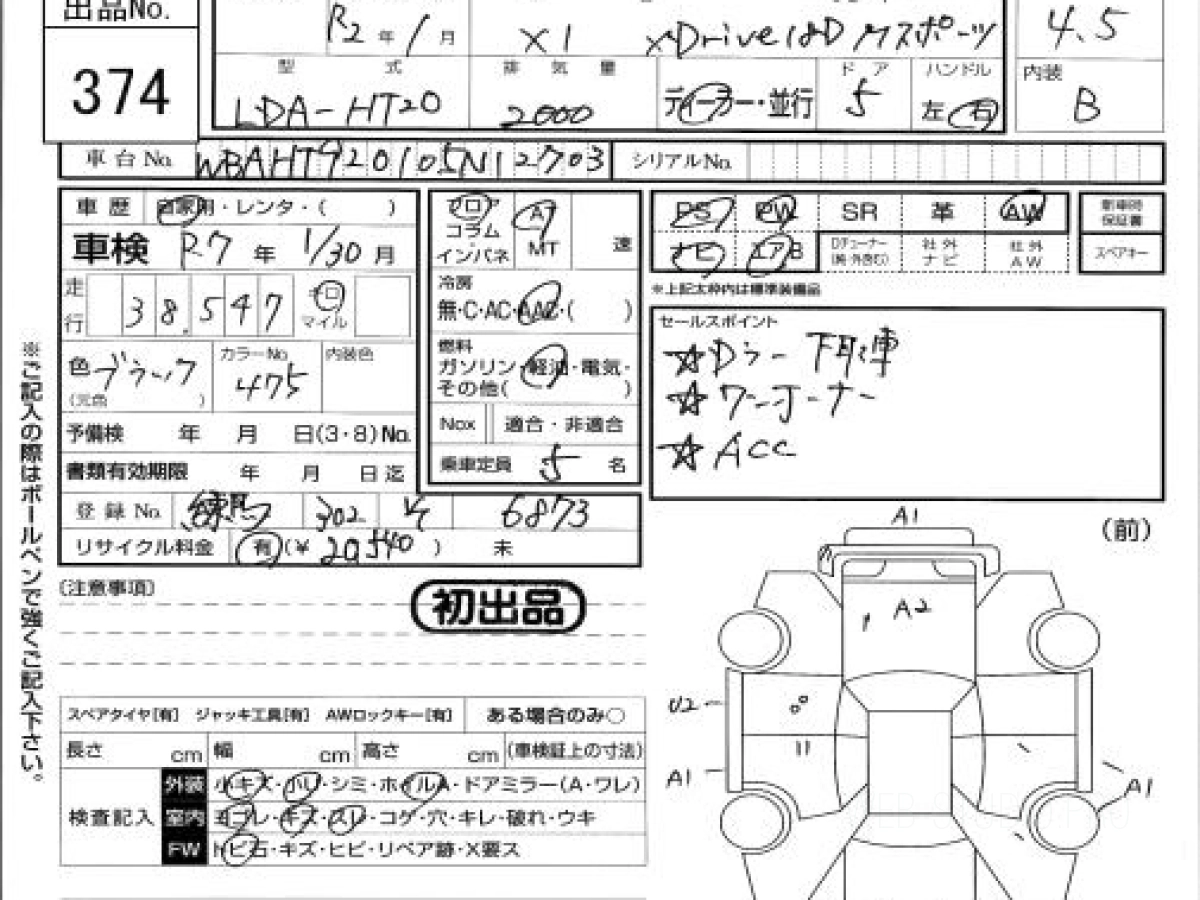 出品No.
374
R2 年 1 月
X1
xDrive18D Mスポーツ
4.5
型 式
排 気 量
ド ア
ハンドル
内装
LDA-HT20
2000
ディーラー・並行
5
左・右
B
車台No. WBAHT920105N12703
シリアルNo.
車 歴 自家用・レンタ・( )
車検 R7 年 1/30 月
走行 38,547 キロ マイル
色 ブラック (元色 )
カラーNo. 475
内装色
予備検 年 月 日(3・8)No.
書類有効期限 年 月 日迄
登 録 No. 練馬 302 6873
リサイクル料金 有 (¥ 20,540 ) 未
フロア コラム インパネ
AT MT 速
冷房
無・C・AC・AAC・( )
燃料
ガソリン・軽油・電気・
その他( )
Nox 適合・非適合
乗車定員 5 名
PS PW SR 革 AW
ナビ エアB Dチューナー(純・外含む) 社外ナビ 社外AW
新車時保証書
スペアキー
※上記太枠内は標準装備品
セールスポイント
☆Dラー 下取車
☆ワンオーナー
☆ACC
※ご記入の際はボールペンで強くご記入下さい。
(注意事項)
初出品
スペアタイヤ[有] ジャッキ工具[有] AWロックキー[有] ある場合のみ○
長さ cm 幅 cm 高さ cm (車検証上の寸法)
検査記入
外装 小キズ・小凹・シミ・ホイルA・ドアミラー(A・ワレ)
室内 ヨゴレ・キズ・スレ・コゲ・穴・キレ・破れ・ウキ
FW トビ石・キズ・ヒビ・リペア跡・X要ス
(前)
A1
A2
U2
A1
A1